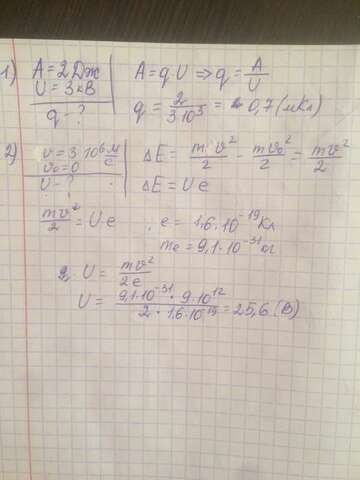 1) A = 2 Дж
U = 3 кВ
q - ?
A = q·U ⇒ q = A/U
q = 2/3·10³ = 0,7 (мКл)
2) v = 3·10⁶ м/с
v₀ = 0
U - ?
ΔE = mv²/2 - mv₀²/2 = mv²/2
ΔE = Ue
mv²/2 = U·e ; e = 1,6·10⁻¹⁹ Кл
me = 9,1·10⁻³¹ кг
U = mv²/2e
U = 9,1·10⁻³¹ · 9·10¹²/2 · 1,6·10⁻¹⁹ = 25,6 (В)